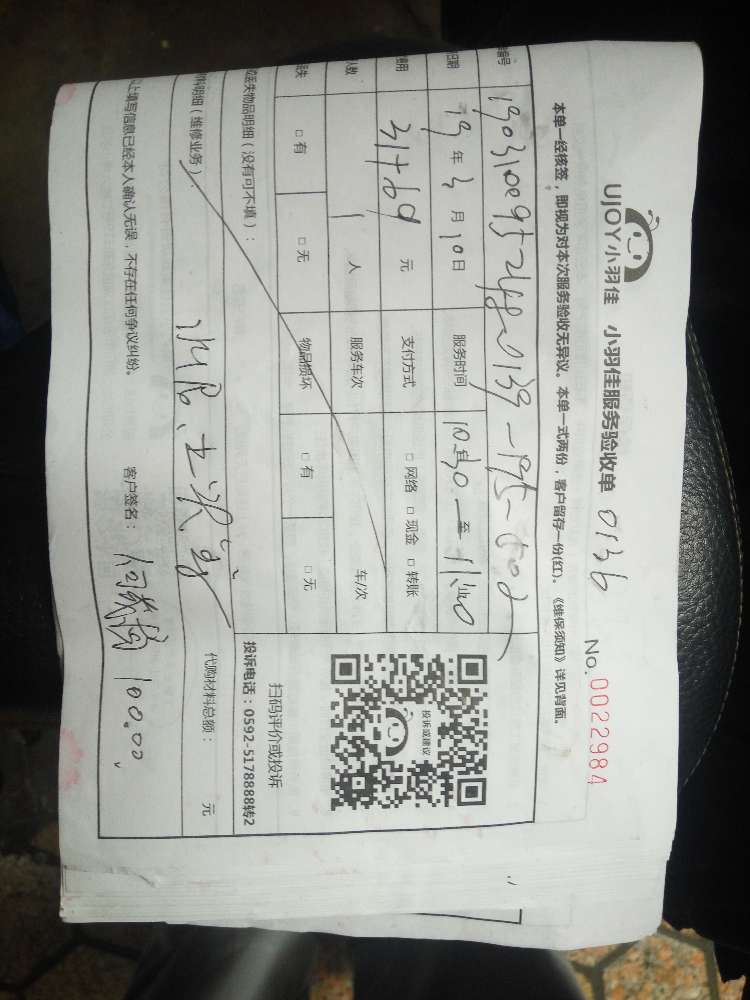 UJOY小羽佳 小羽佳服务验收单 0136
No.0022984
本单一经核签，即视为对本次服务验收无异议。本单一式两份，客户留存一份(红)。《维保须知》详见背面。
编号
日期 19年3月10日 服务时间 10:30至11:00
费用 元 支付方式 □ 网络 □ 现金 □ 转账
人数 1人 服务车次 车/次
丢失 □ 有 □ 无 物品损坏 □ 有 □ 无
投诉或建议
扫码评价或投诉
投诉电话：0592-5178888转2
或丢失物品明细（没有可不填）：
材料明细（维修业务）：
代购材料总额： 元
以上填写信息已经本人确认无误，不存在任何争议纠纷。 客户签名： 100.00